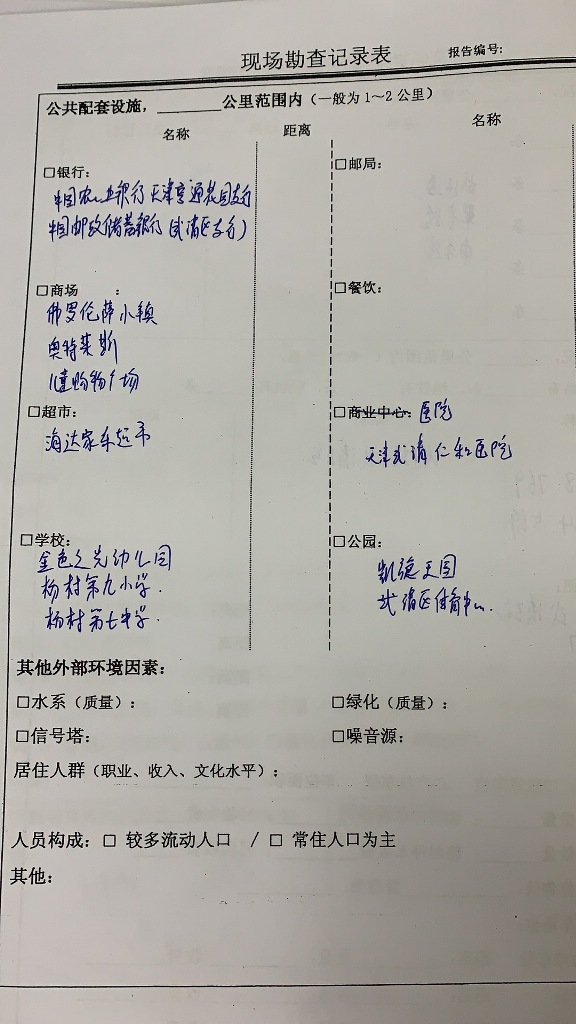 现场勘查记录表
报告编号:
公共配套设施，______公里范围内（一般为1～2公里）
名称 距离 名称
□银行:
中国农业银行天津亨通花园支行
中国邮政储蓄银行(武清区支行)
□邮局:
□商场 :
佛罗伦萨小镇
奥特莱斯
购物广场
□餐饮:
□超市:
海达家乐超市
□商业中心: 医院
天津武清仁和医院
□学校:
金色之光幼儿园
杨村第九小学.
杨村第七中学.
□公园:
凯德王园
武清区体育中心.
其他外部环境因素:
□水系（质量）: □绿化（质量）:
□信号塔: □噪音源:
居住人群（职业、收入、文化水平）;
人员构成: □ 较多流动人口 / □ 常住人口为主
其他: